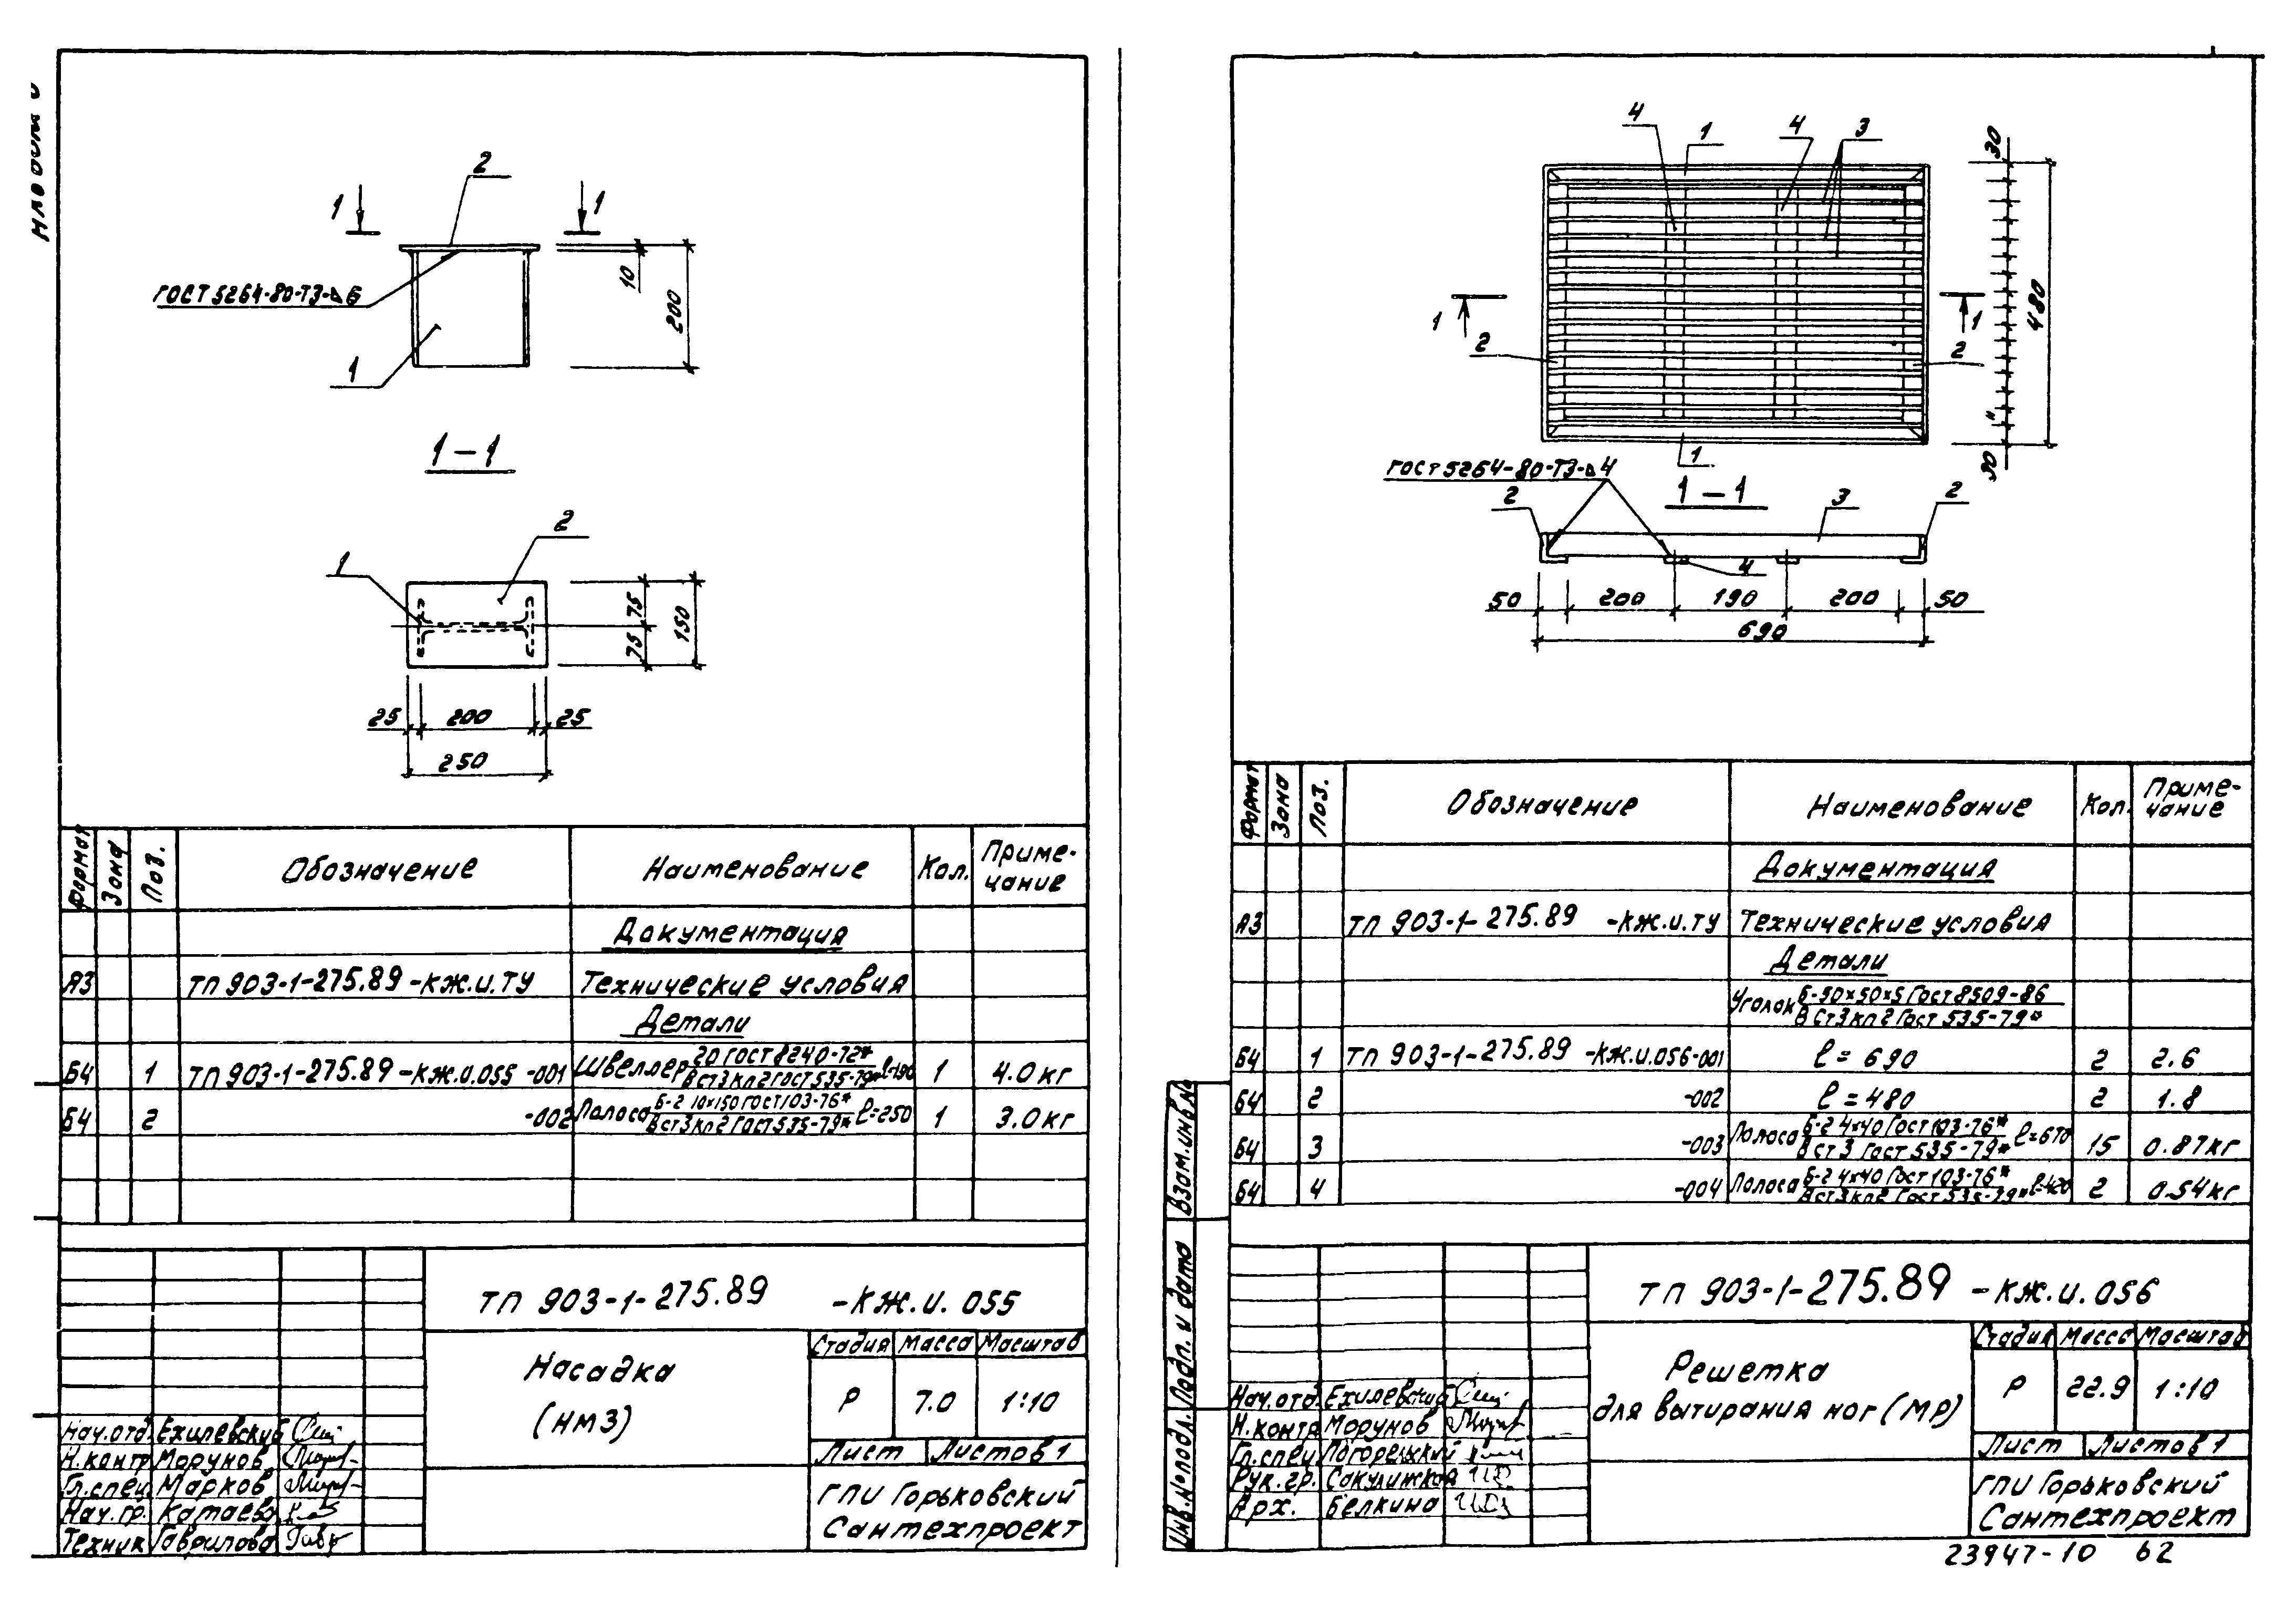 2
1
1
ГОСТ 5264-80-Т3-⊿6
10
200
1
1-1
2
1
75
75
150
25
200
25
250
Формат
Зона
Поз.
Обозначение
Наименование
Кол.
Приме-
чание
Документация
А3 ТП 903-1-275.89 -КЖ.И.ТУ Технические условия
Детали
Б4 1 ТП 903-1-275.89 -КЖ.И.055 -001 Швеллер 20 ГОСТ 8240-72* 1 4.0 кг
ВСт3кп2 ГОСТ 535-79* ℓ=190
Б4 2 -002 Полоса Б-2 10х150 ГОСТ 103-76* ℓ=250 1 3.0 кг
ВСт3кп2 ГОСТ 535-79*
ТП 903-1-275.89 -КЖ.И.055
Насадка
(НМ3)
Стадия Масса Масштаб
Р 7.0 1:10
Лист Листов 1
Нач.отд. Ехилевский
Н.контр Морунов
Гл.спец Марков
Нач.гр. Катаева
Техник Гаврилова
ГПИ Горьковский
Сантехпроект
4
1
4
3
30
480
30
1
1
2
2
1
ГОСТ 5264-80-Т3-⊿4
1-1
2
3
2
4
50
200
190
200
50
690
Формат
Зона
Поз.
Обозначение
Наименование
Кол.
Приме-
чание
Документация
А3 ТП 903-1-275.89 -КЖ.И.ТУ Технические условия
Детали
Уголок Б-50х50х5 ГОСТ 8509-86
ВСт3кп2 ГОСТ 535-79*
Б4 1 ТП 903-1-275.89 -КЖ.И.056-001 ℓ=690 2 2.6
Б4 2 -002 ℓ=480 2 1.8
Б4 3 -003 Полоса Б-2 4х40 ГОСТ 103-76* ℓ=670 15 0.87кг
ВСт3 ГОСТ 535-79*
Б4 4 -004 Полоса Б-2 4х40 ГОСТ 103-76* ℓ=420 2 0.54кг
ВСт3кп2 ГОСТ 535-79*
Взам.инв.№
Подп. и дата
Инв.№ подл.
ТП 903-1-275.89 -КЖ.И.056
Решетка
для вытирания ног (МР)
Стадия Масса Масштаб
Р 22.9 1:10
Лист Листов 1
Нач.отд. Ехилевский
Н.контр Морунов
Гл.спец
Рук.гр.
Арх. Белкина
ГПИ Горьковский
Сантехпроект
23947-10 62